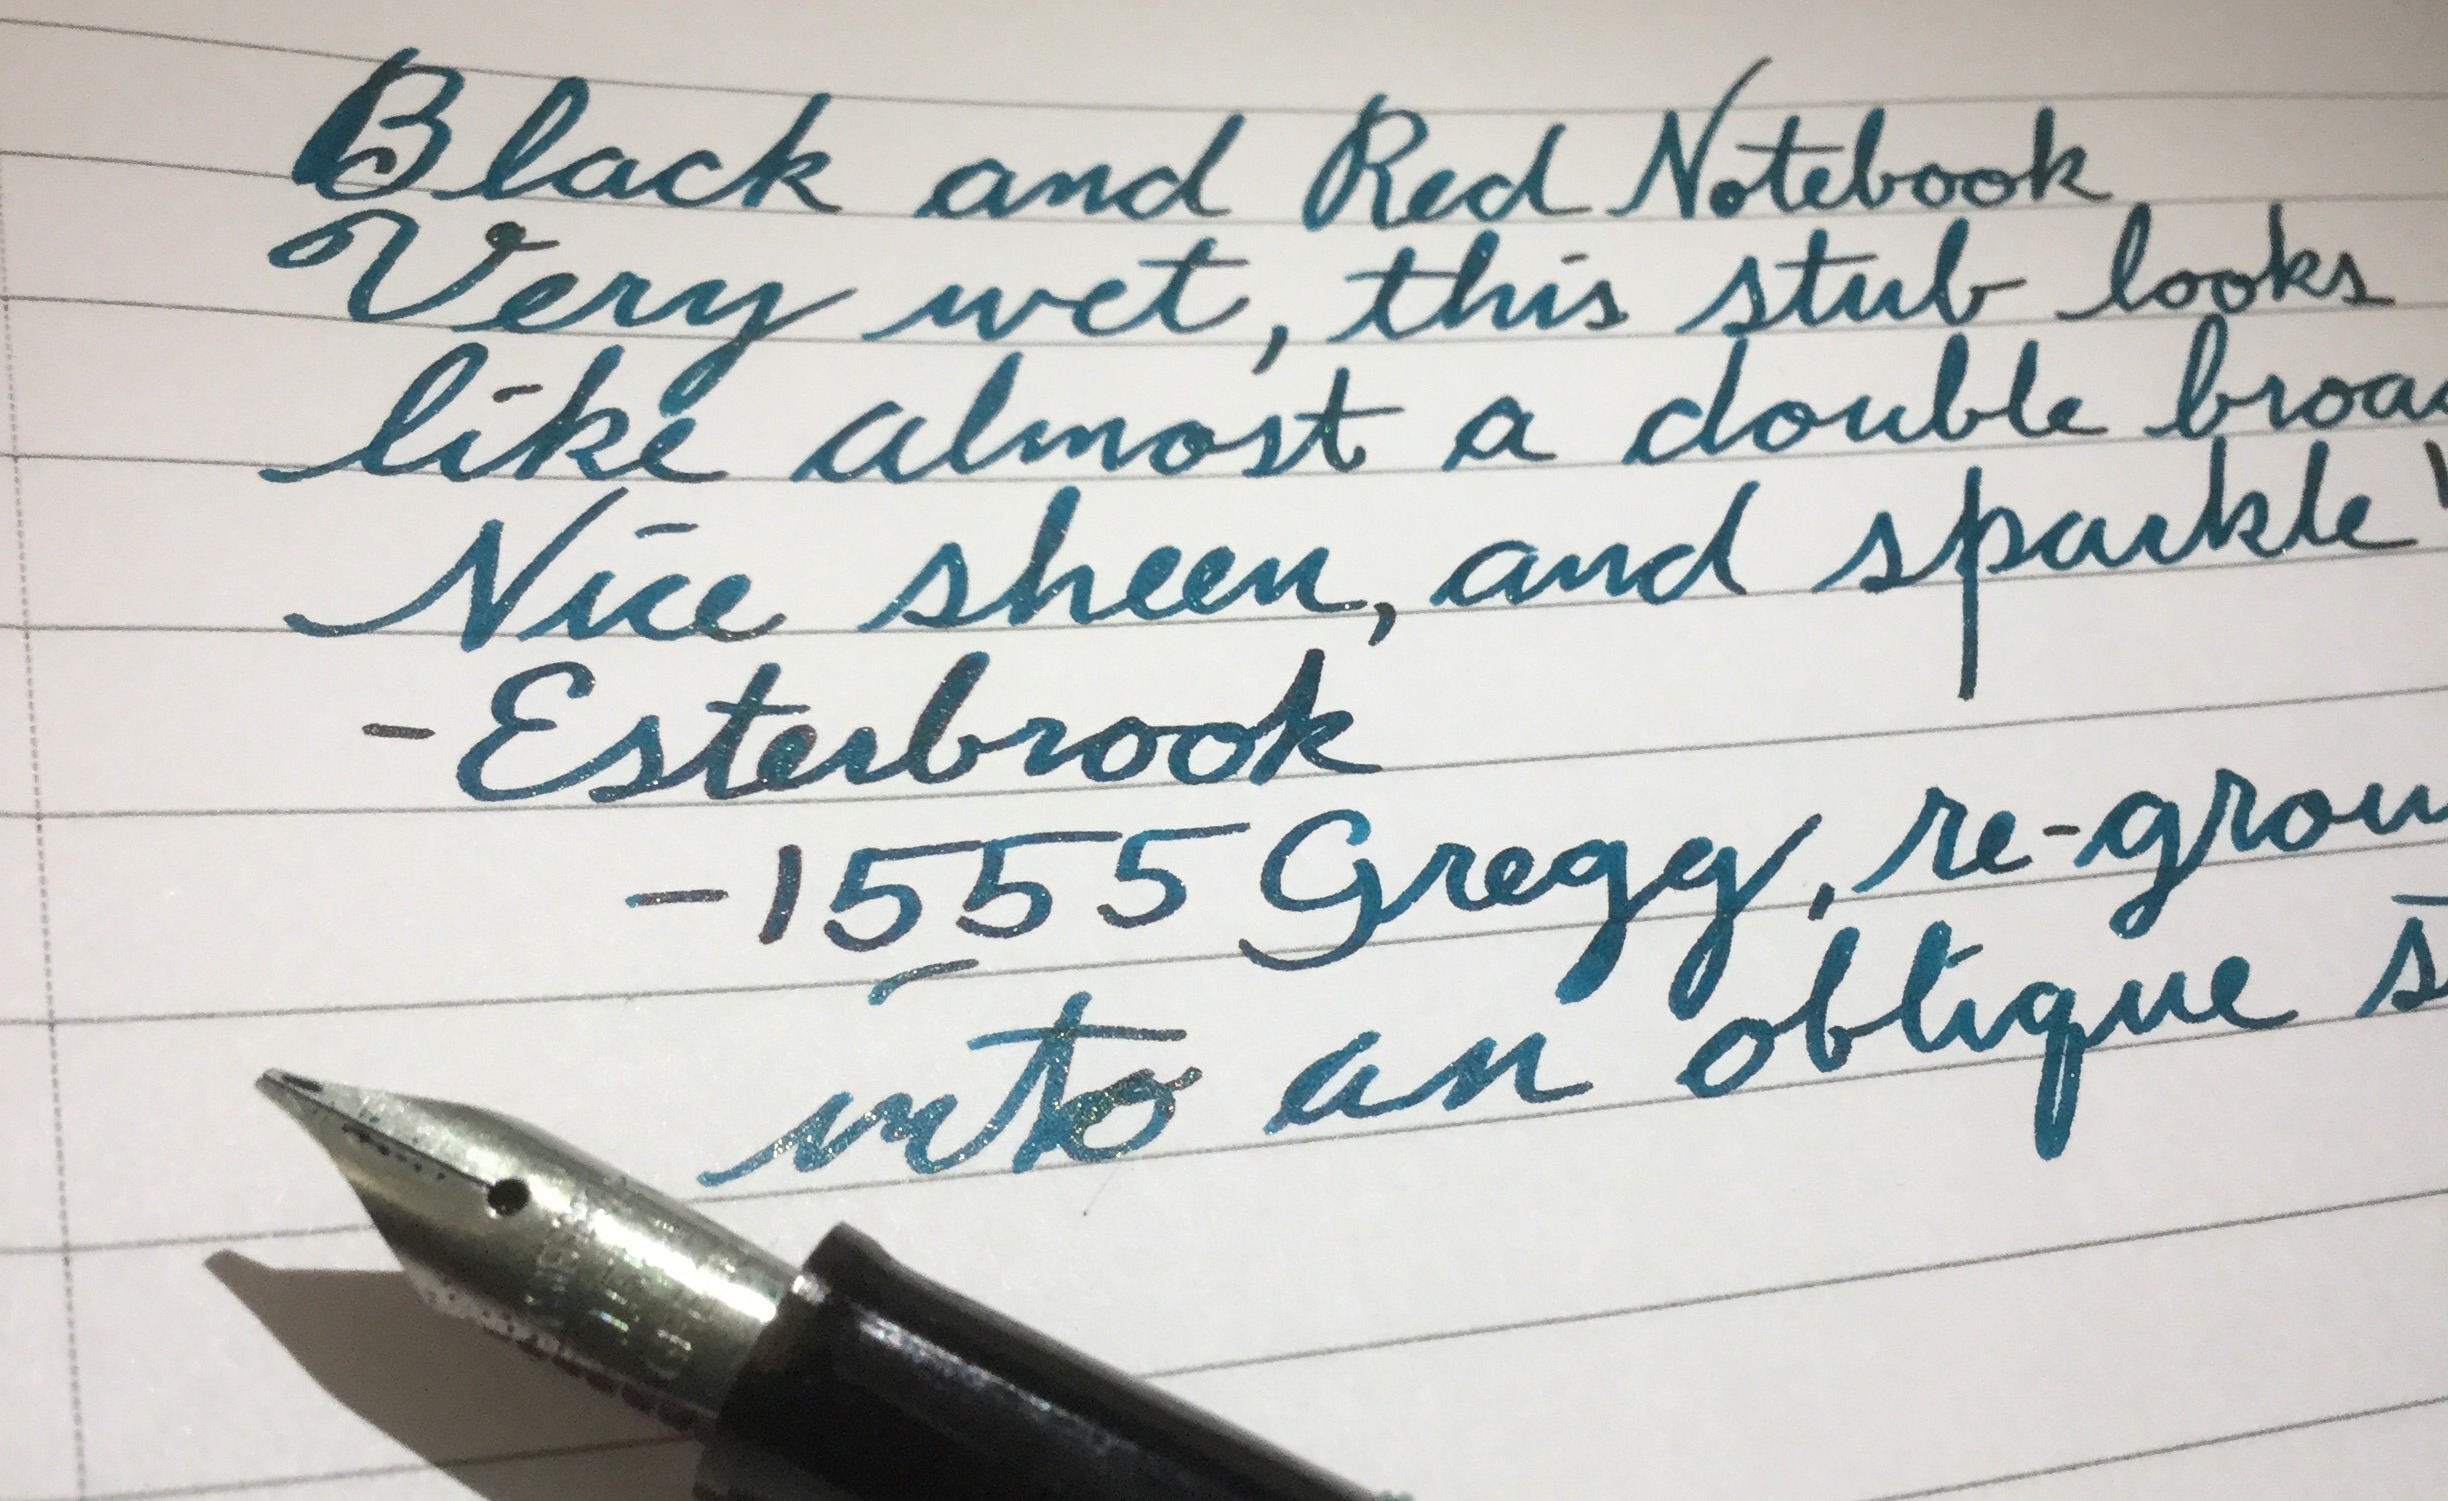 Black and Red Notebook
Very wet, this stub looks
like almost a double broa
Nice sheen, and sparkle
-Esterbrook
-1555 Gregg, re-grou
into an oblique s